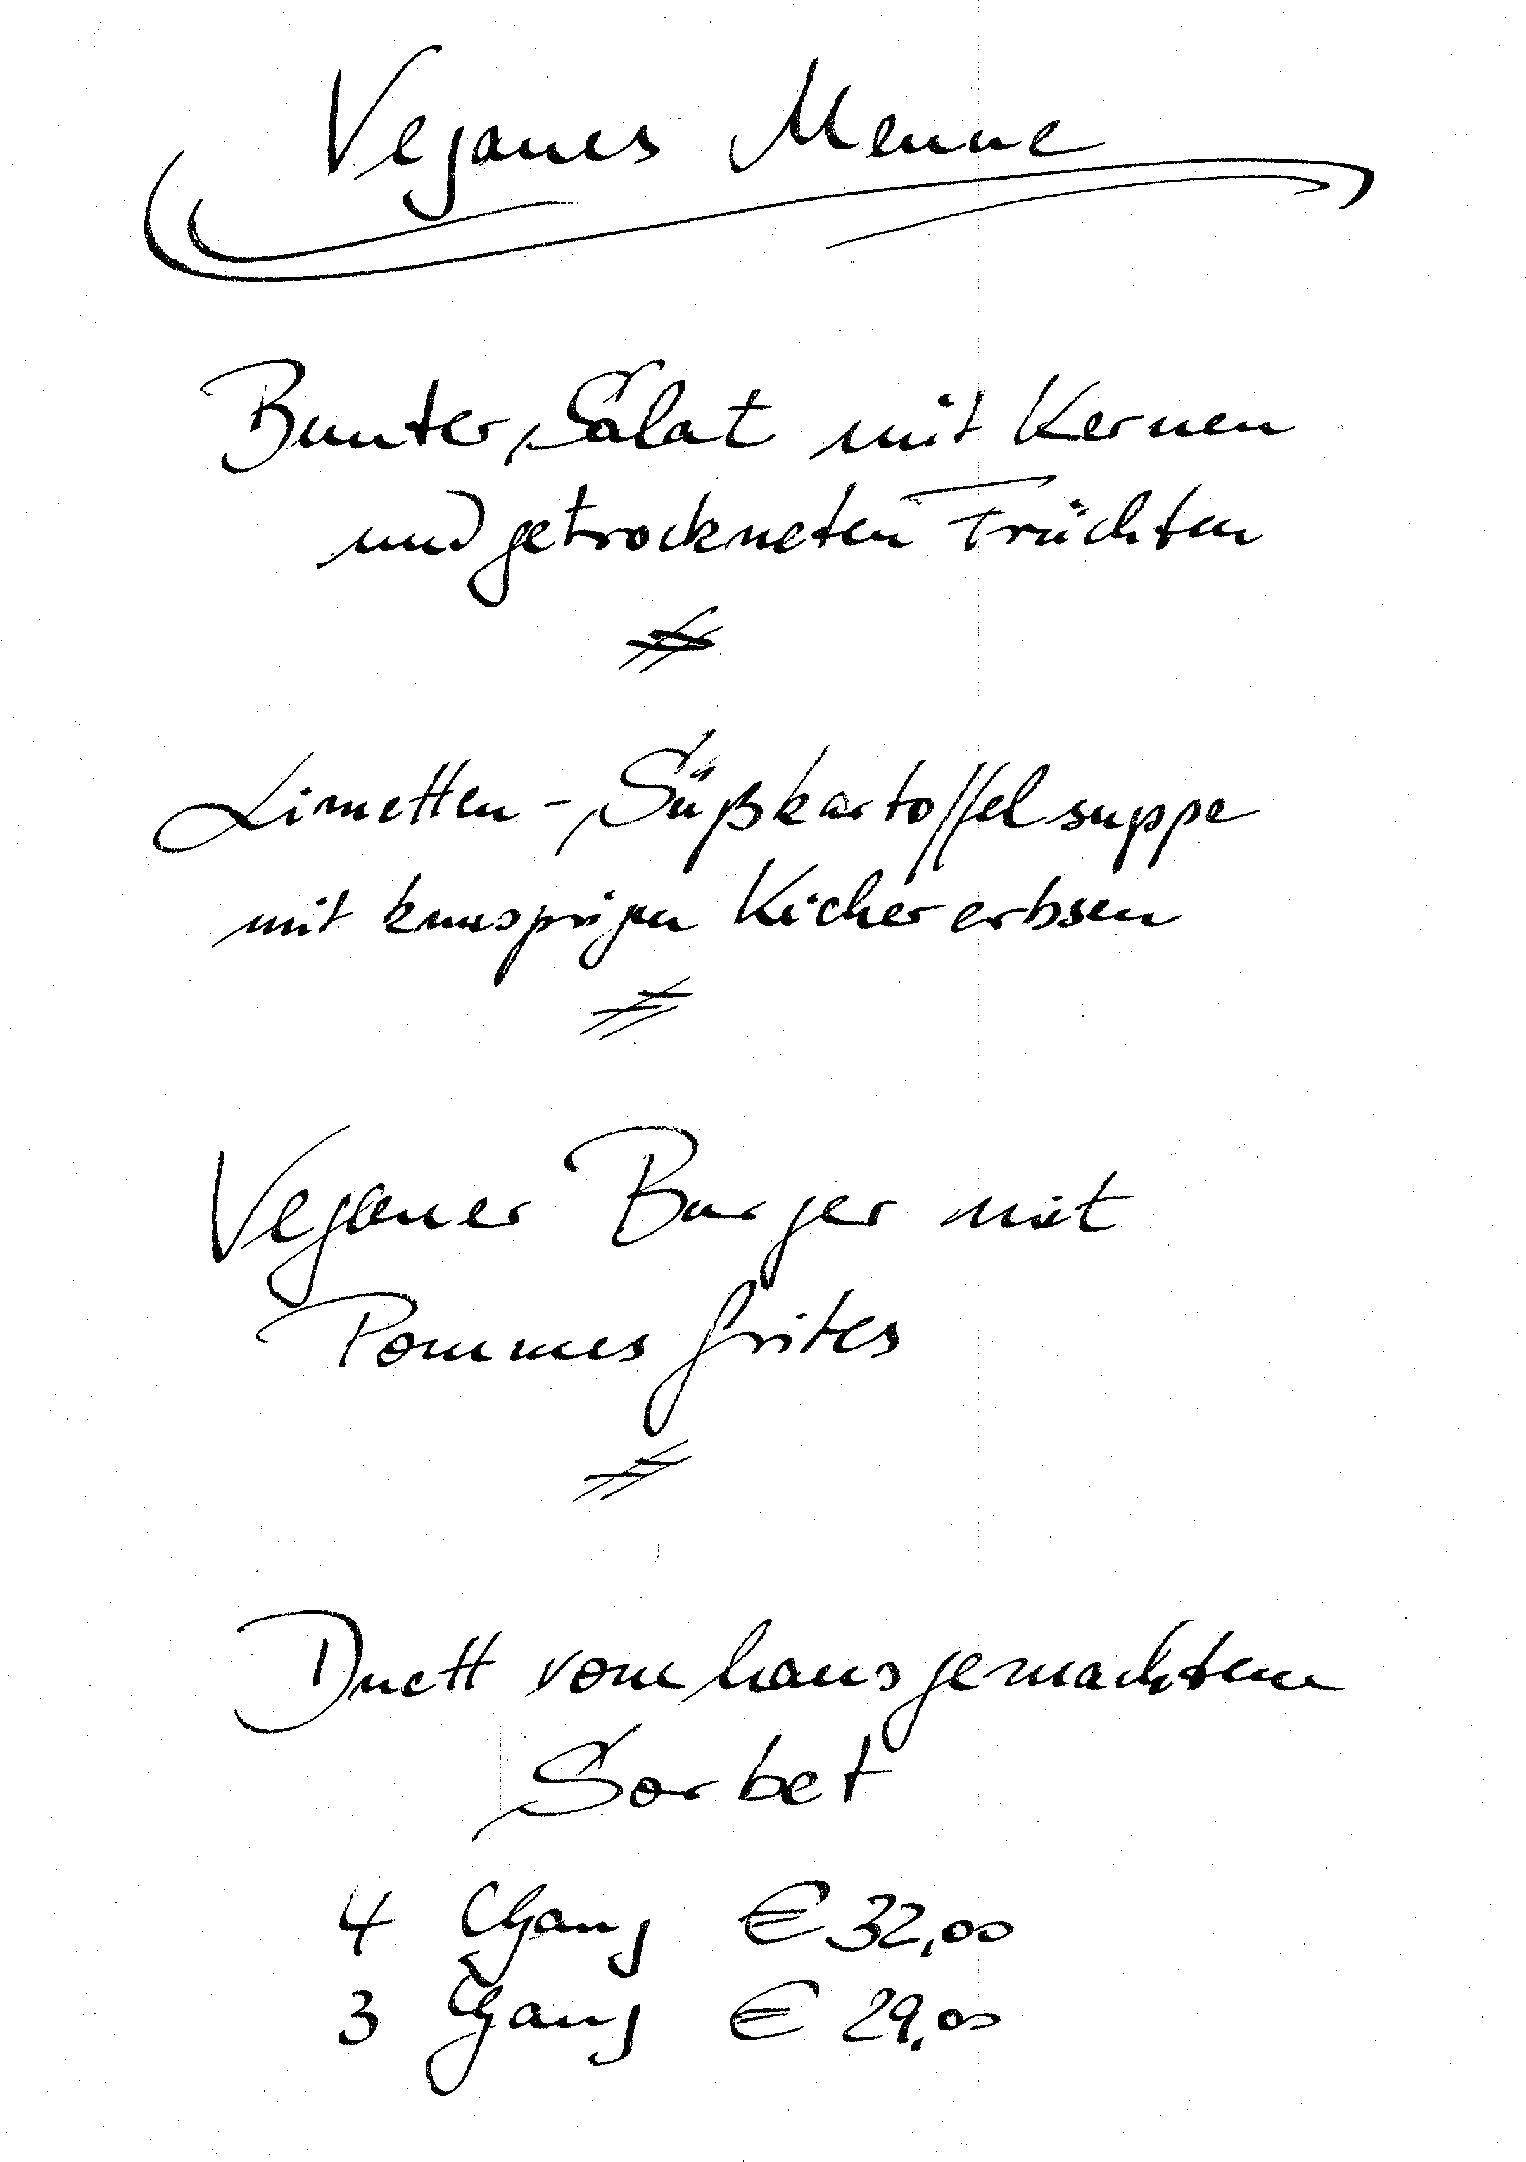 Veganes Menue
Bunter Salat mit Kernen
und getrockneten Früchten
#
Limetten-Süßkartoffelsuppe
mit knusprigen Kichererbsen
#
Veganer Burger mit
Pommes frites
#
Duett vom hausgemachten
Sorbet
4 Gang € 32,00
3 Gang € 29,00